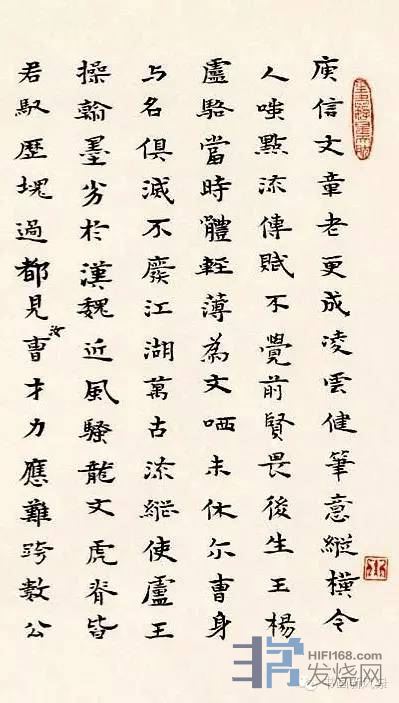 庾信文章老更成凌雲健筆意縱橫令
人嗤點流傳賦不覺前賢畏後生王楊
盧駱當時體輕薄為文哂未休尔曹身
与名俱滅不廢江湖萬古流縱使盧王
操翰墨劣於漢魏近風騷龍文虎脊皆
君馭歷塊過都見汝曹才力應難跨數公
HIFI168.com
发烧网